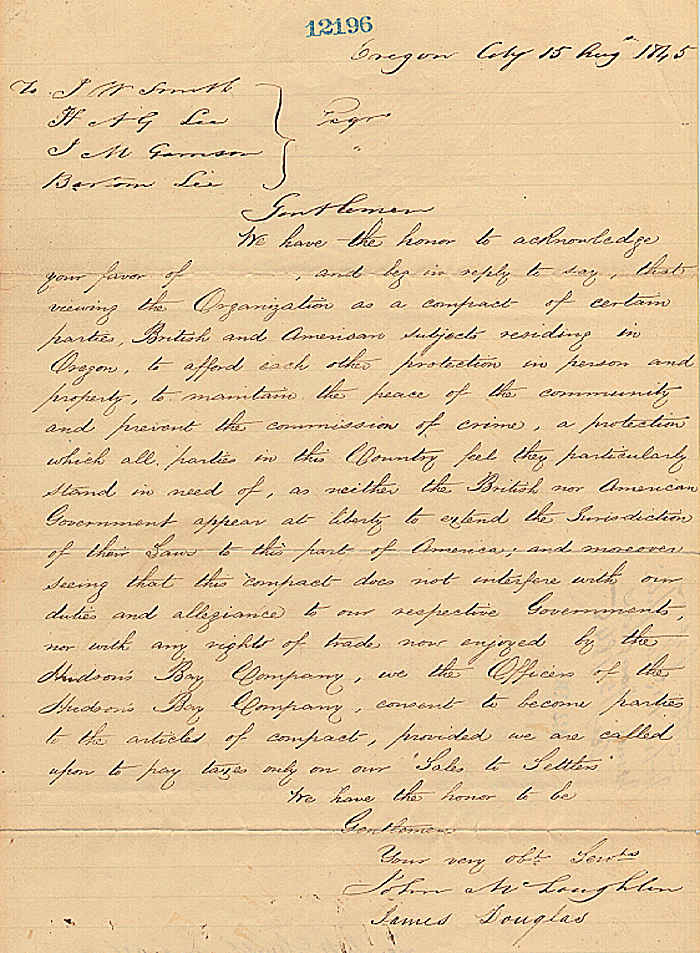 12196
Oregon City 15 Augt 1845
To J W Smith
H A G Lee
J M Garrison
Barton Lee
Esqrs
"
Gentlemen
We have the honor to acknowledge
your favor of , and beg in reply to say, that
viewing the Organization as a compact of certain
parties, British and American subjects residing in
Oregon, to afford each other protection in person and
property, to maintain the peace of the community
and prevent the commission of crime, a protection
which all parties in this Country feel they particularly
stand in need of, as neither the British nor American
Government appear at liberty to extend the Jurisdiction
of their Laws to this part of America; and moreover
seeing that this compact does not interfere with our
duties and allegiance to our respective Governments,
nor with any rights of trade now enjoyed by the
Hudson's Bay Company, we the Officers of the
Hudson's Bay Company, consent to become parties
to the articles of compact, provided we are called
upon to pay taxes only on our "Sales to Settlers"
We have the honor to be
Gentlemen
Your very obt. Servts
John McLoughlin
James Douglas